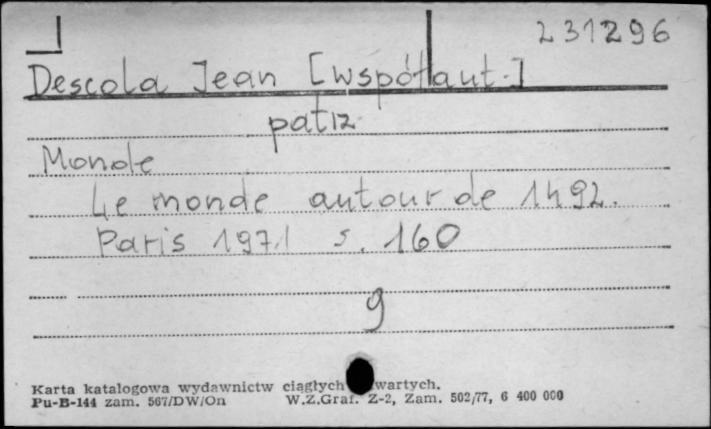 231296
Descola Jean [współaut.]
patrz
Monde
Le monde autour de 1492.
Paris 1971 s. 160
g
Karta katalogowa wydawnictw ciągłych wartych.
Pu-B-144 zam. 567/DW/On W.Z.Graf. Z-2, Zam. 502/77, 6 400 000